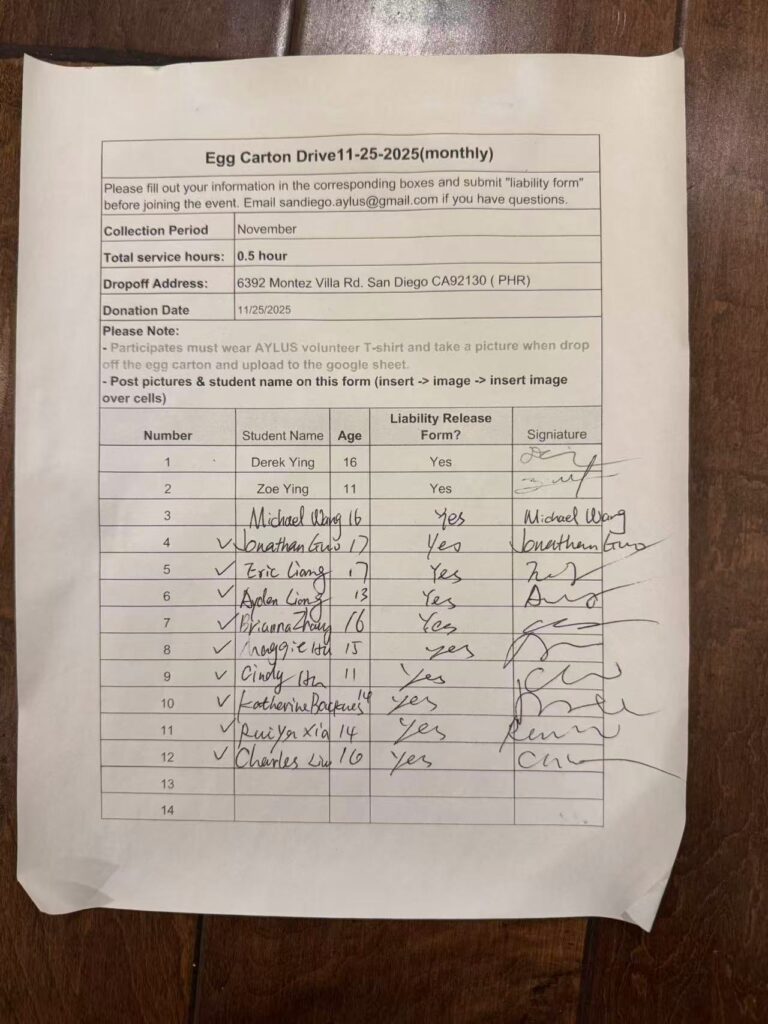 Egg Carton Drive11-25-2025(monthly)
Please fill out your information in the corresponding boxes and submit "liability form"
before joining the event. Email sandiego.aylus@gmail.com if you have questions.
Collection Period November
Total service hours: 0.5 hour
Dropoff Address: 6392 Montez Villa Rd. San Diego CA92130 ( PHR)
Donation Date 11/25/2025
Please Note:
- Participates must wear AYLUS volunteer T-shirt and take a picture when drop
off the egg carton and upload to the google sheet.
- Post pictures & student name on this form (insert -> image -> insert image
over cells)
Number Student Name Age Liability Release Form? Signiature
1 Derek Ying 16 Yes
2 Zoe Ying 11 Yes
3 Michael Wang 16 Yes Michael Wang
4 ✓ Jonathan Guo 17 Yes Jonathan Guo
5 ✓ Eric Liang 17 Yes
6 ✓ Ayden Liang 13 Yes
7 ✓ Brianna Zhang 16 Yes
8 ✓ Maggie Hu 15 yes
9 ✓ Cindy Hu 11 Yes
10 ✓ Katherine 14 yes
11 ✓ Xia 14 Yes
12 ✓ Charles Liu 16 Yes
13
14